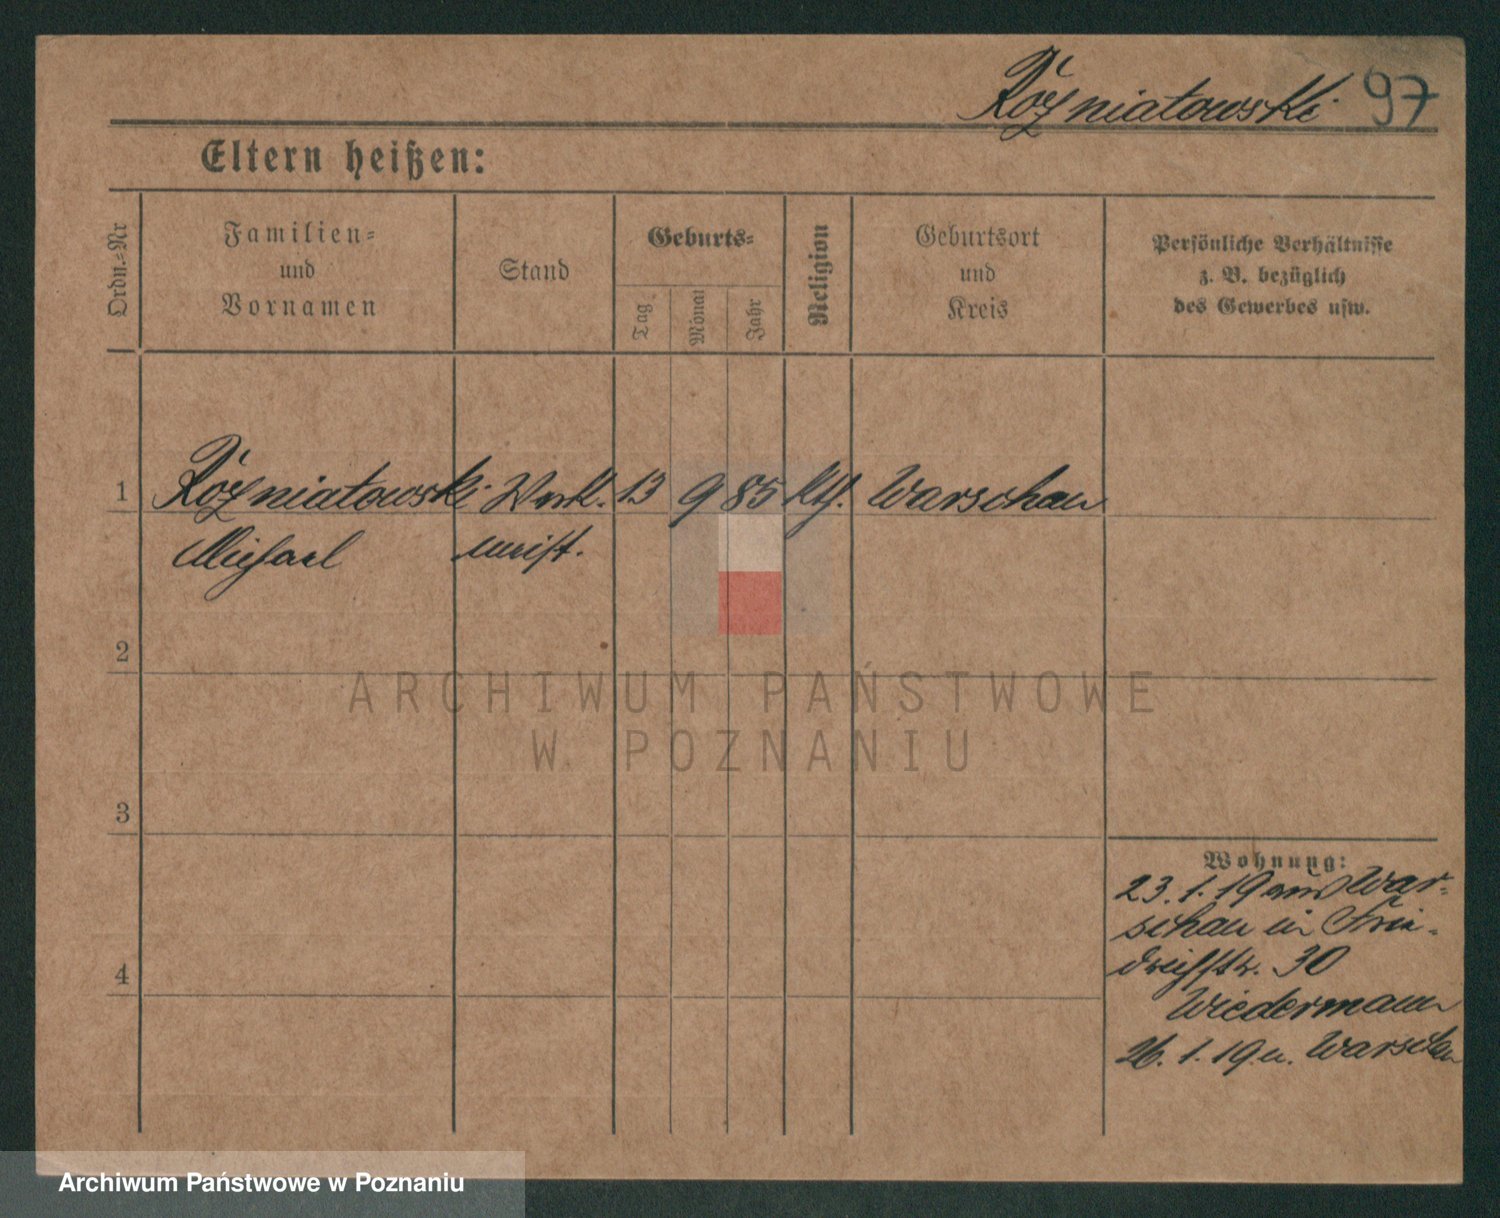 Różniatowski 97
Eltern heißen:
Ordn.-Nr
Familien-
und
Vornamen
Stand
Geburts-
Tag
Monat
Jahr
Religion
Geburtsort
und
Kreis
Persönliche Verhältnisse
z. B. bezüglich
des Gewerbes usw.
1 Różniatowski Werk. 13 9 85 kth. Warschau
Michael meist.
2
3
4
Wohnung:
23.1.19 aus War-
schau in Frie-
drichstr. 30
Wiedermann
26.1.19 n. Warschau
ARCHIWUM PAŃSTWOWE
W POZNANIU
Archiwum Państwowe w Poznaniu